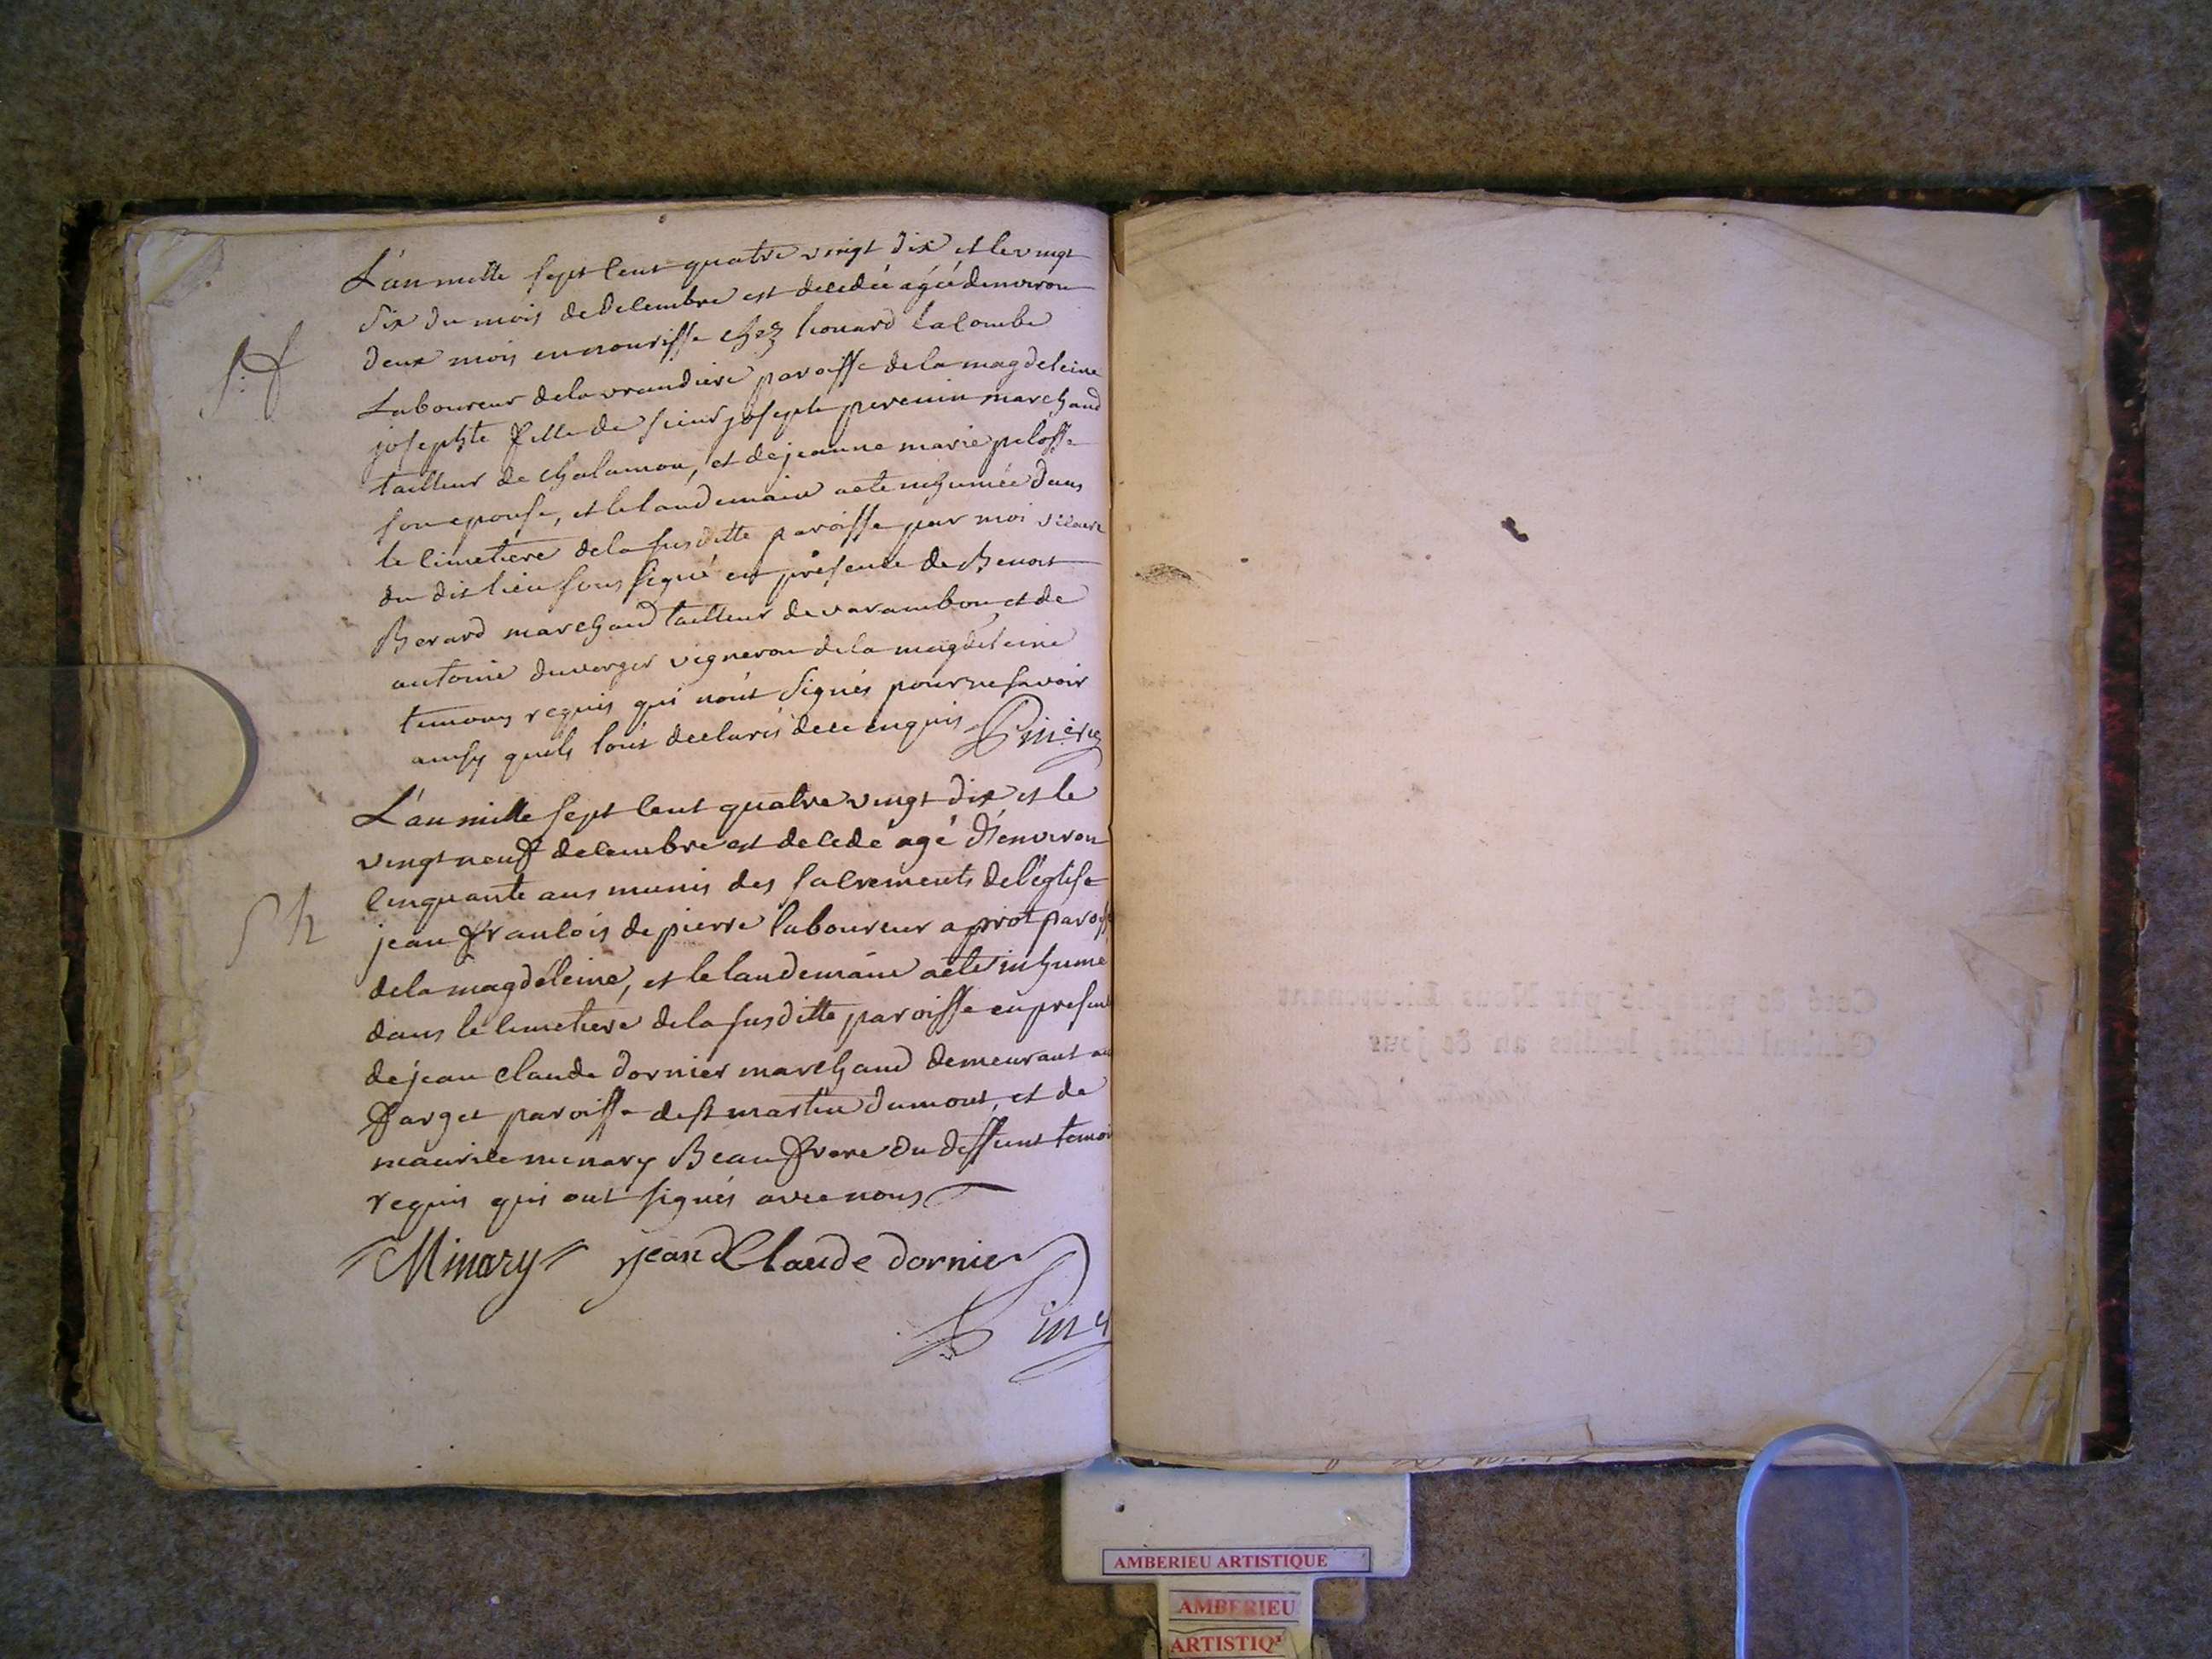 L'an mille sept cent quatre vingt dix et le vingt
six du mois de decembre est decedée agée denviron
deux mois en nourisse chez lionard lacombe
S: f
Laboureur de la vrandiere paroisse de la magdeleine
josephte fille de sieur joseph perenin marchand
tailleur de chalamon, et de jeanne marie pelosse
son epouse, et le landemain a eté inhumée dans
le cimetiere de la susditte paroisse par moi vicaire
du dit lieu sous signé en présence de Benoit
Berard marchand tailleur de varambon et de
antoine duverger vigneron de la magdeleine
temoins requis qui n'ont signés pour ne savoir
ainsy quils l'ont declarés de ce enquis
L'an mille sept cent quatre vingt dix et le
vingt neuf decembre est decedé agé d'environ
cinquante ans munis des sacrements de l'eglise
S h
jean francois de pierre laboureur a priot paroisse
de la magdeleine, et le landemain a eté inhumé
dans le cimetiere de la susditte paroisse en presence
de jean claude dornier marchand demeurant au
farget paroisse de st martin du mont, et de
maurice minary Beau frere du deffunt temoi
requis qui ont signés avec nous
Minary jean Claude dornier
Coté & paraphé par Nous Lieutenant
Général feuillets au dit jour
AMBERIEU ARTISTIQUE
AMBERIEU
ARTISTIQ